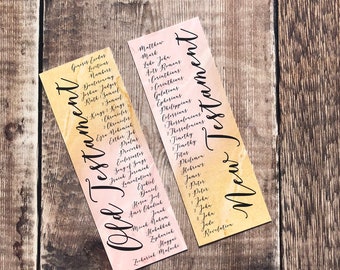 Old Testament
Genesis Exodus
Leviticus
Numbers
Deuteronomy
Joshua Judges
Ruth Samuel
2 Samuel
Kings
Chronicles
2 Chronicles
Ezra Nehemiah
Esther Job
Psalms
Proverbs
Ecclesiastes
Song of Songs
Isaiah Jeremiah
Lamentations
Ezekiel
Daniel
Hosea Joel
Amos Obadiah
Jonah
Micah Nahum
Habakkuk
Zephaniah
Haggai
Zechariah Malachi
New Testament
Matthew
Mark
Luke John
Acts Romans
1 Corinthians
2 Corinthians
Galatians
Ephesians
Philippians
Colossians
1 Thessalonians
2 Thessalonians
1 Timothy
2 Timothy
Titus
Philemon
Hebrews
James
1 Peter
2 Peter
1 John
2 John
3 John
Jude
Revelation